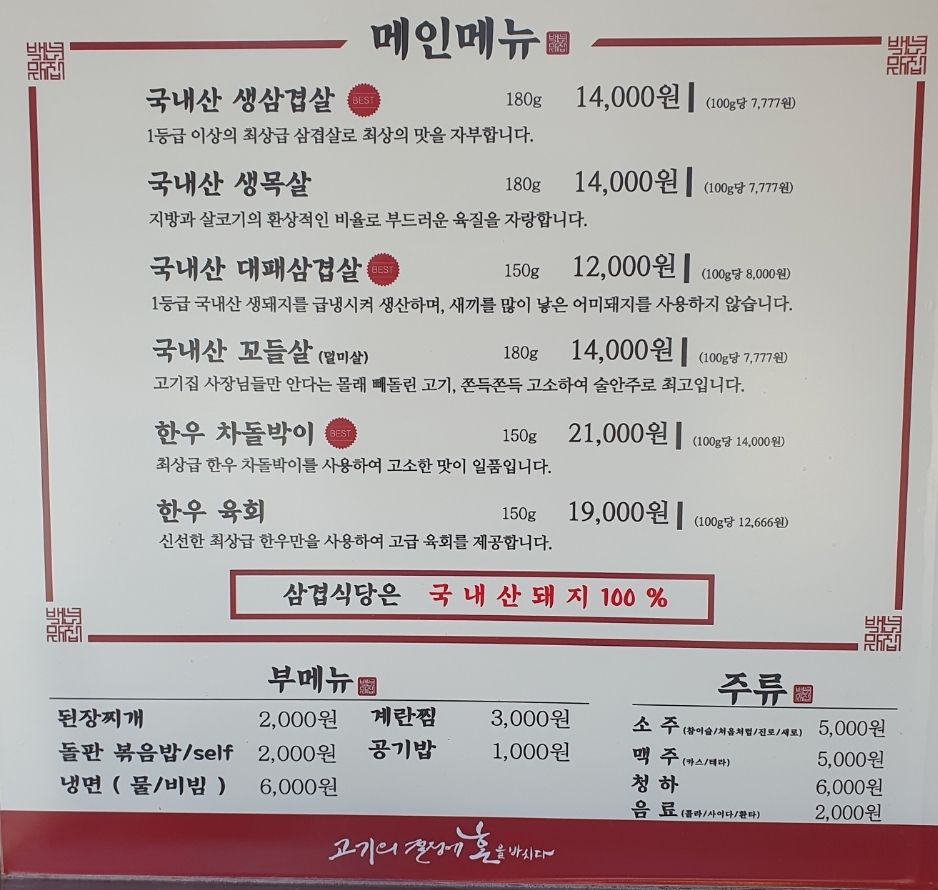 메인메뉴
국내산 생삼겹살 BEST 180g 14,000원 (100g당 7,777원)
1등급 이상의 최상급 삼겹살로 최상의 맛을 자부합니다.
국내산 생목살 180g 14,000원 (100g당 7,777원)
지방과 살코기의 환상적인 비율로 부드러운 육질을 자랑합니다.
국내산 대패삼겹살 BEST 150g 12,000원 (100g당 8,000원)
1등급 국내산 생돼지를 급냉시켜 생산하며, 새끼를 많이 낳은 어미돼지를 사용하지 않습니다.
국내산 꼬들살 (덜미살) 180g 14,000원 (100g당 7,777원)
고기집 사장님들만 안다는 몰래 빼돌린 고기, 쫀득쫀득 고소하여 술안주로 최고입니다.
한우 차돌박이 BEST 150g 21,000원 (100g당 14,000원)
최상급 한우 차돌박이를 사용하여 고소한 맛이 일품입니다.
한우 육회 150g 19,000원 (100g당 12,666원)
신선한 최상급 한우만을 사용하여 고급 육회를 제공합니다.
삼겹식당은 국내산돼지 100 %
부메뉴
된장찌개 2,000원 계란찜 3,000원
돌판 볶음밥/self 2,000원 공기밥 1,000원
냉면 ( 물/비빔 ) 6,000원
주류
소 주 (참이슬/처음처럼/진로/새로) 5,000원
맥 주 (카스/테라) 5,000원
청 하 6,000원
음 료 (콜라/사이다/환타) 2,000원
고기의 열정에 혼을 바치다